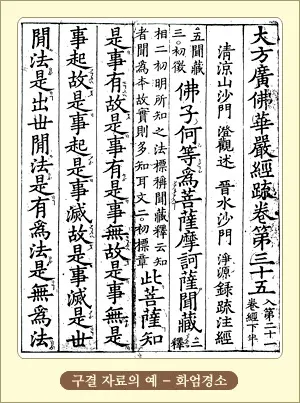 大方廣佛華嚴經䟽卷第三十五
入第二十一
卷經下半
清涼山沙門 澄觀述 晉水沙門 淨源録䟽注經
五聞藏
三○初徵
佛子何等爲菩薩摩訶薩聞藏
二
釋
相二初明所知之法標稱聞藏釋云知
者聞爲本故實則多知耳文二○初標章
此菩薩知
是事有故是事有是事無故是事無是
事起故是事起是事滅故是事滅是世
聞法是出世聞法是有爲法是無爲法
구결 자료의 예 – 화엄경소